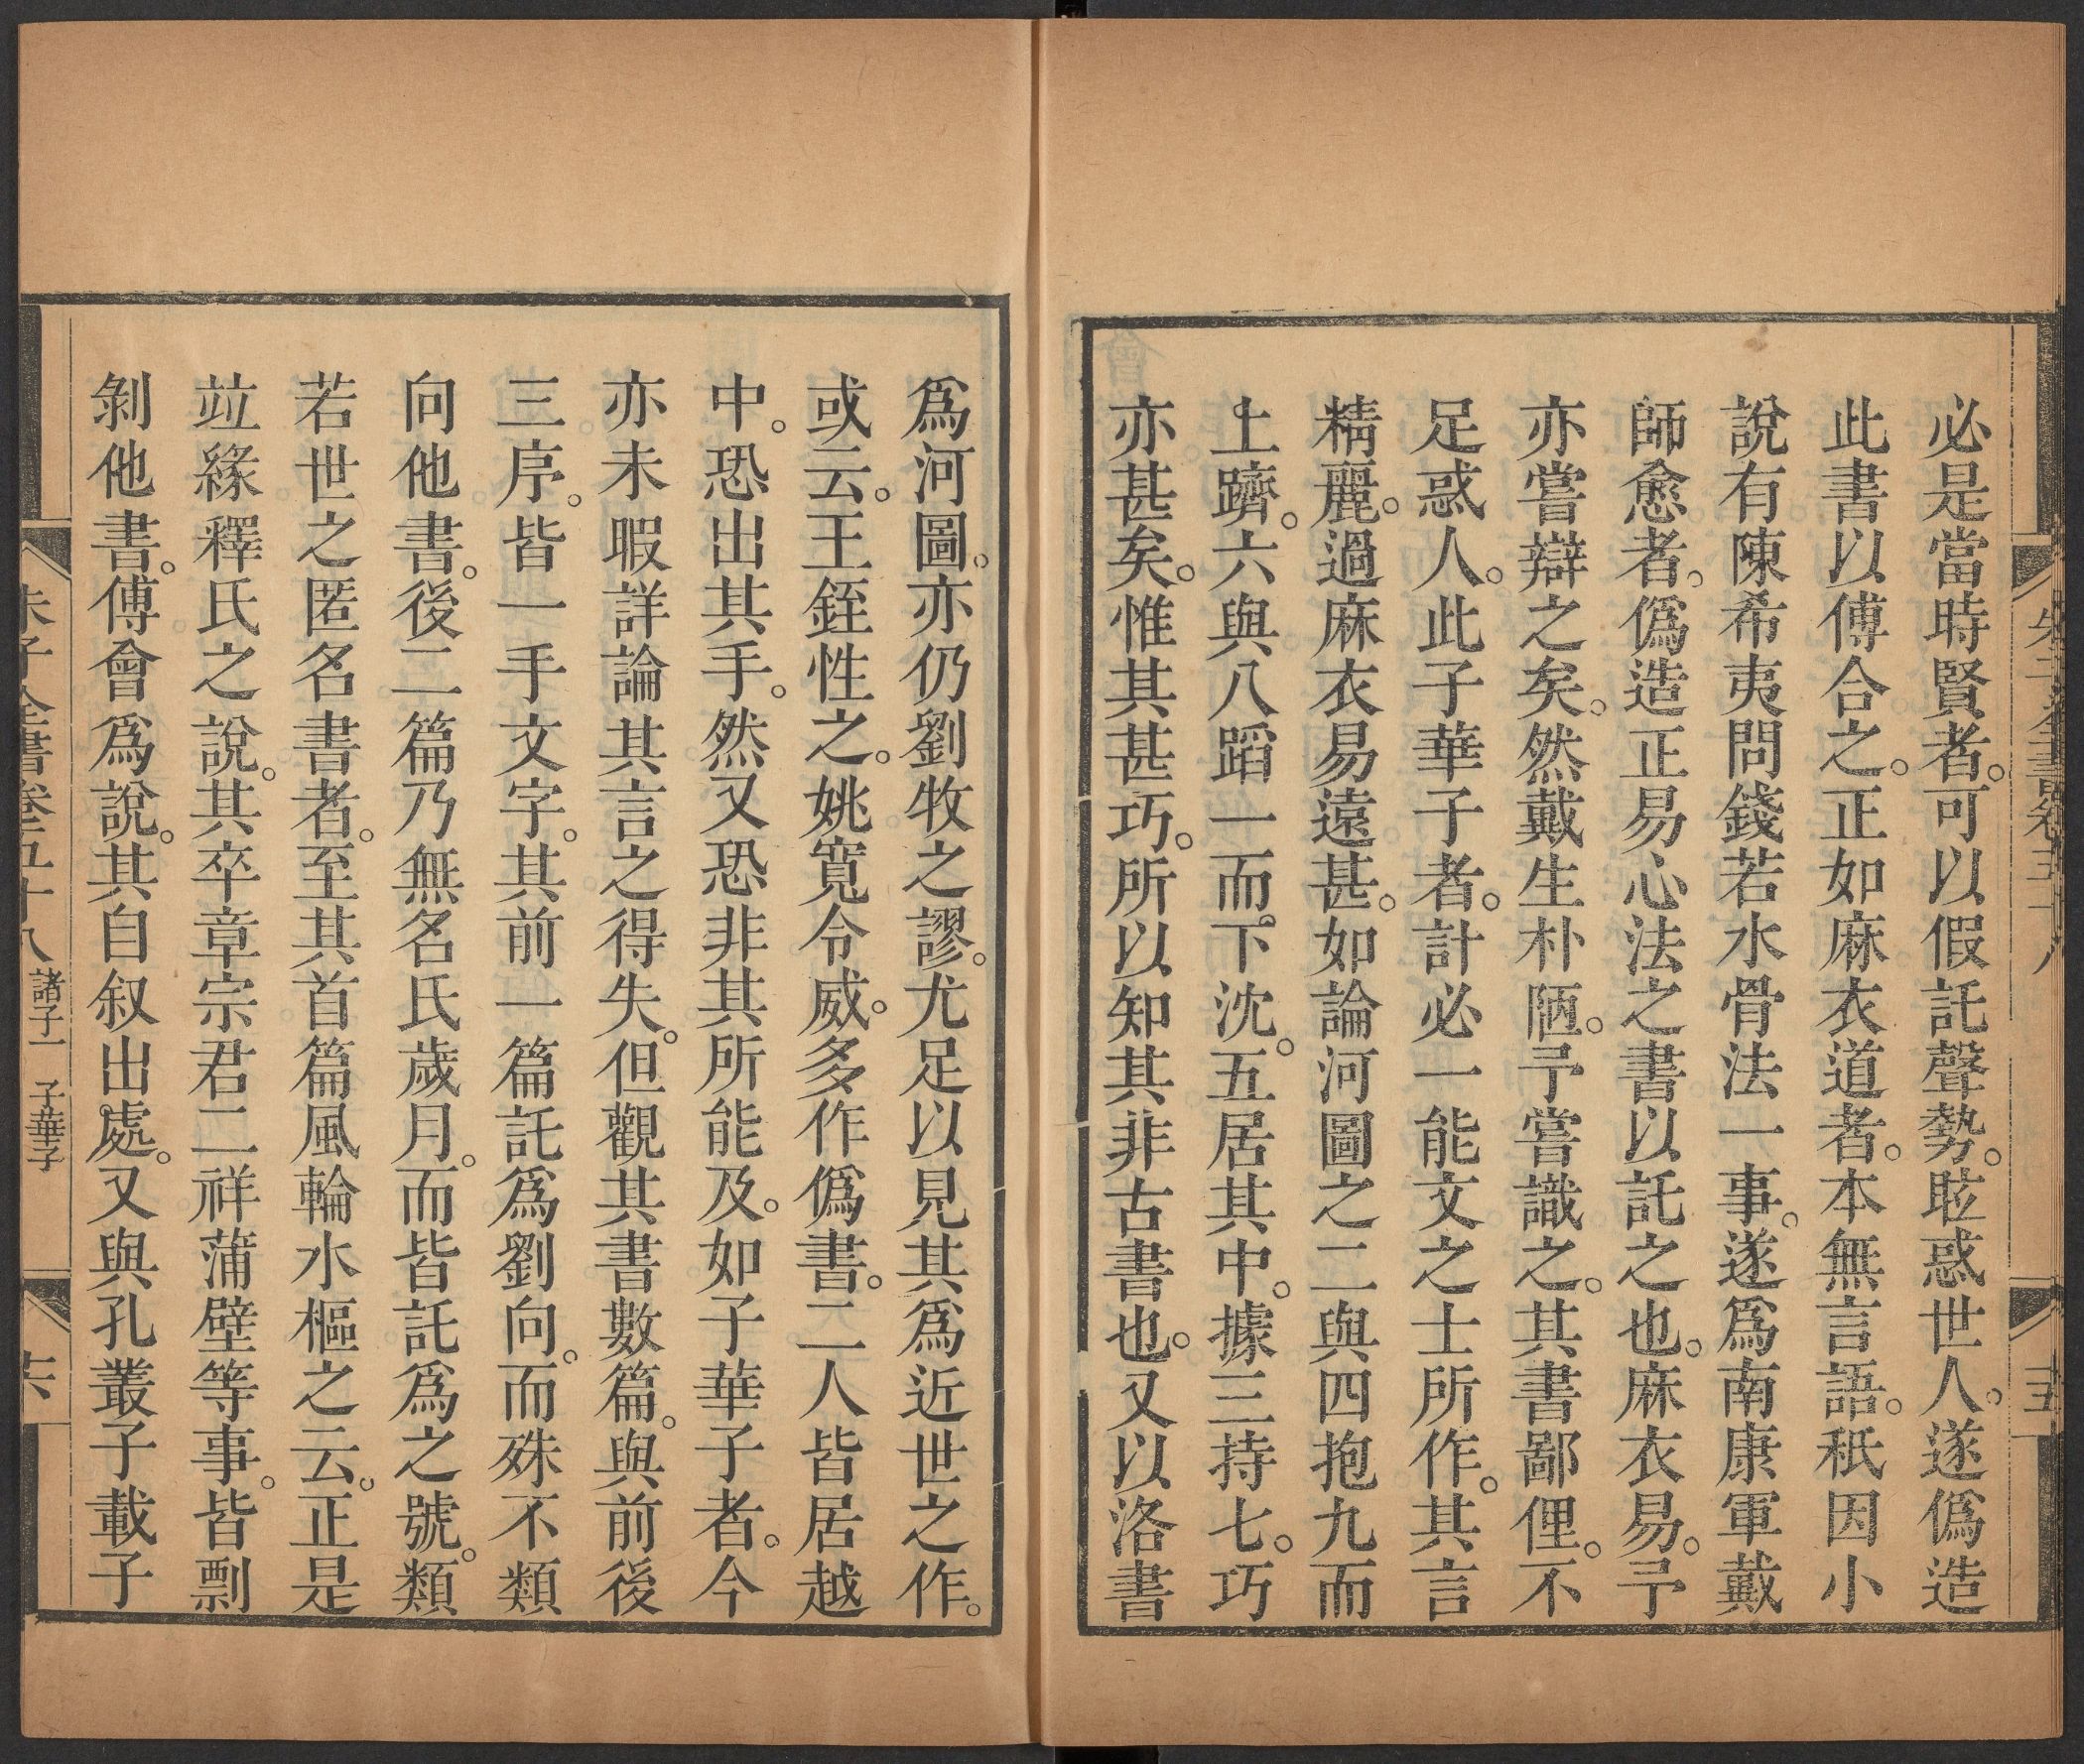 必是當時賢者。可以假託聲勢。眩惑世人。遂僞造
此書以傅合之。正如麻衣道者。本無言語。秖因小
說有陳希夷問錢若水骨法一事。遂爲南康軍戴
師愈者。僞造正易心法之書以託之也。麻衣易。予
亦嘗辯之矣。然戴生朴陋。予嘗識之。其書鄙俚。不
足惑人。此子華子者。計必一能文之士所作。其言
精麗。過麻衣易遠甚。如論河圖之二與四抱九而
上躋。六與八蹈一而下沈。五居其中。據三持七。巧
亦甚矣。惟其甚巧。所以知其非古書也。又以洛書
爲河圖。亦仍劉牧之謬。尤足以見其爲近世之作。
或云。王銍性之。姚寬令威。多作僞書。二人皆居越
中。恐出其手。然又恐非其所能及。如子華子者。今
亦未暇詳論其言之得失。但觀其書數篇。與前後
三序。皆一手文字。其前一篇託爲劉向。而殊不類
向他書。後二篇乃無名氏歲月。而皆託爲之號。類
若世之匿名書者。至其首篇風輪水樞之云。正是
竝緣釋氏之說。其卒章宗君二祥蒲璧等事。皆剽
剝他書。傅會爲說。其自叙出處。又與孔叢子載子
朱子全書卷五十八 諸子一 子華子
十六